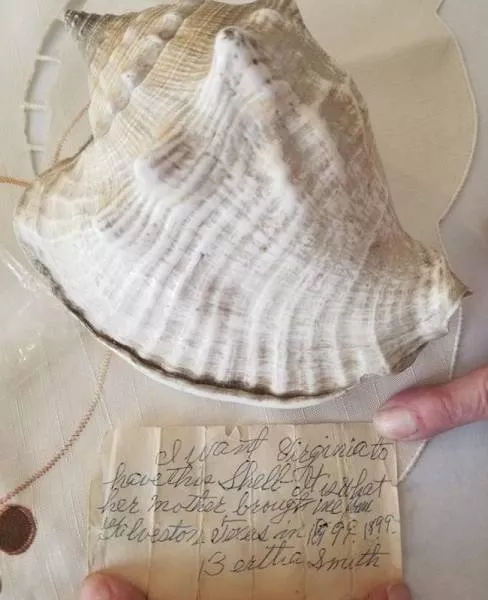 I want Virginia to
have this Shell. It is what
her mother brought me from
Galveston, Texas in 1899. 1899.
Bertha Smith